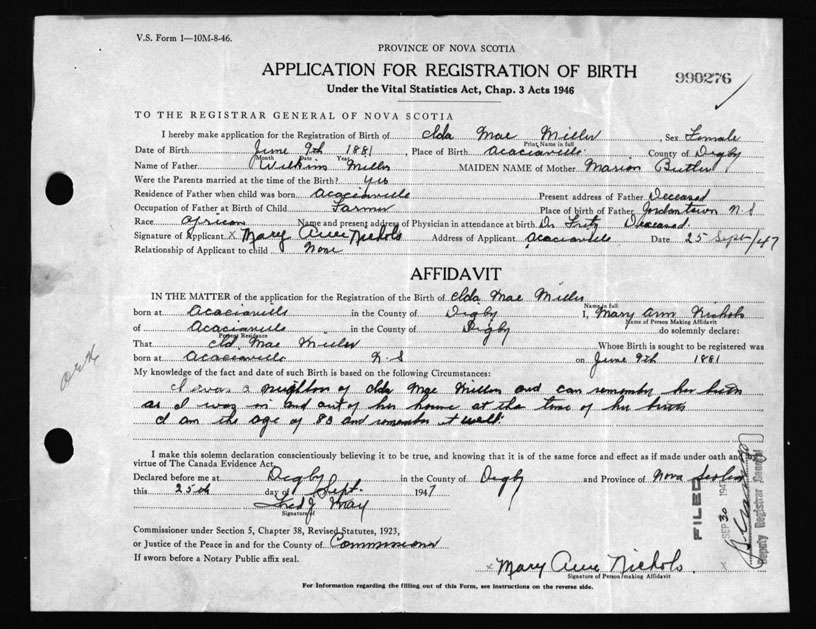 V.S. Form 1—10M-8-46.
PROVINCE OF NOVA SCOTIA
APPLICATION FOR REGISTRATION OF BIRTH
990276
Under the Vital Statistics Act, Chap. 3 Acts 1946
TO THE REGISTRAR GENERAL OF NOVA SCOTIA
I hereby make application for the Registration of Birth of Ida Mae Miller, Sex Female
Print Name in full
Date of Birth June 9th 1881 Place of Birth Acaciaville County of Digby
Month Date Year
Name of Father Wilkins Miller MAIDEN NAME of Mother Marion Butler
Were the Parents married at the time of the Birth? yes
Residence of Father when child was born Acaciaville Present address of Father Deceased
Occupation of Father at Birth of Child Farmer Place of birth of Father Jordantown N.S
Race African Name and present address of Physician in attendance at birth Dr. Fritz Deceased.
Signature of Applicant x Mary Ann Nichols Address of Applicant Acaciaville Date 25 Sept/47
Relationship of Applicant to child None
AFFIDAVIT
IN THE MATTER of the application for the Registration of the Birth of Ida Mae Miller
Name in full
born at Acaciaville in the County of Digby I, Mary Ann Nichols
Name of Person Making Affidavit
of Acaciaville in the County of Digby do solemnly declare:
Present Residence
That Ida Mae Miller Whose Birth is sought to be registered was
born at Acaciaville N.S on June 9th 1881
My knowledge of the fact and date of such Birth is based on the following Circumstances:
I was a neighbor of Ida Mae Miller and can remember her birth
as I was in and out of her home at the time of her birth
I am the age of 83 and remember it well.
I make this solemn declaration conscientiously believing it to be true, and knowing that it is of the same force and effect as if made under oath and by
virtue of The Canada Evidence Act.
Declared before me at Digby in the County of Digby and Province of Nova Scotia
this 25th day of Sept. 1947
Fred J. May
Signature of
Commissioner under Section 5, Chapter 38, Revised Statutes, 1923,
or Justice of the Peace in and for the County of Commissioner
If sworn before a Notary Public affix seal.
x Mary Ann Nichols.
Signature of Person making Affidavit
For Information regarding the filling out of this Form, see instructions on the reverse side.
FILED
SEP 30 194
Deputy Registrar General